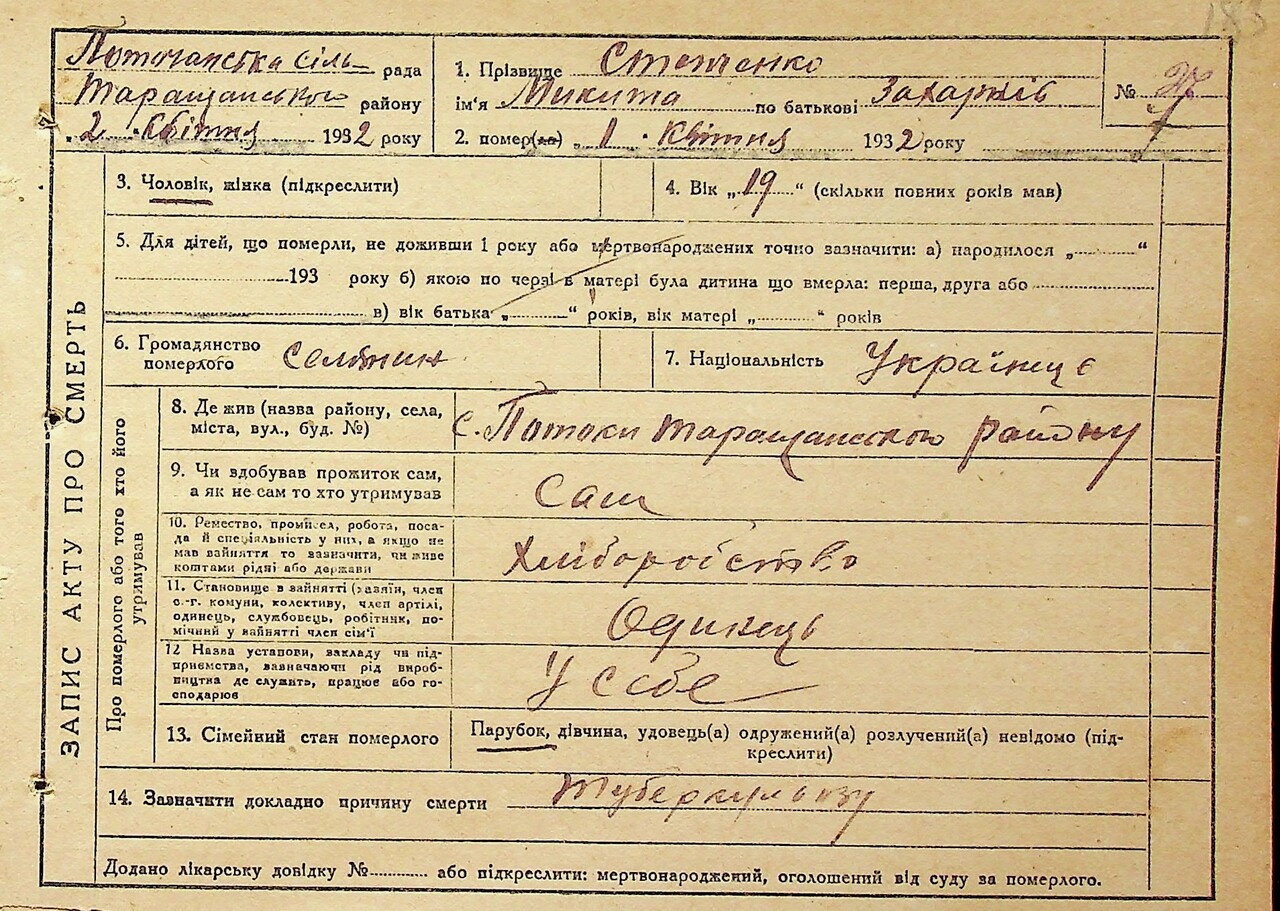 183
Поточанська сіль- рада
Таращанського району
„2 . квітня 1932 року
1. Прізвище Степенко
ім'я Микита по батькові Захарків
2. помер(ла) „1 . Квітня 1932 року
№
ЗАПИС АКТУ ПРО СМЕРТЬ
3. Чоловік, жінка (підкреслити)
4. Вік „19“ (скільки повних років мав)
5. Для дітей, що померли, не доживши 1 року або мертвонароджених точно зазначити: а) народилося „..........“
193 року б) якою по черзі в матері була дитина що вмерла: перша, друга або
в) вік батька „..........“ років, вік матері „..........“ років
6. Громадянство
померлого селянин
7. Національність Українець
Про померлого або того хто його
утримував
8. Де жив (назва району, села,
міста, вул., буд. №)
с. Потоки Таращанського району
9. Чи вдобував прожиток сам,
а як не сам то хто утримував
Сам
10. Ремество, промисел, робота, поса-
да й спеціяльність у них, а якщо не
мав вайняття то зазначити, чи живе
коштами рідні або держави
Хліборобство
11. Становище в вайнятті (хазяїн, член
с.-г. комуни, колективу, член артілі,
одинець, службовець, робітник, по-
мічний у вайнятті член сім'ї
Одинець
12 Назва установи, вакладу чи під-
приємства, вазначаючи рід вироб-
ництва де служить, працює або го-
сподарює
У себе
13. Сімейний стан померлого
Парубок, дівчина, удовець(а) одружений(а) розлучений(а) невідомо (під-
креслити)
14. Зазначити докладно причину смерти туберкульозу
Додано лікарську довідку №.......... або підкреслити: мертвонароджений, оголошений від суду за померлого.